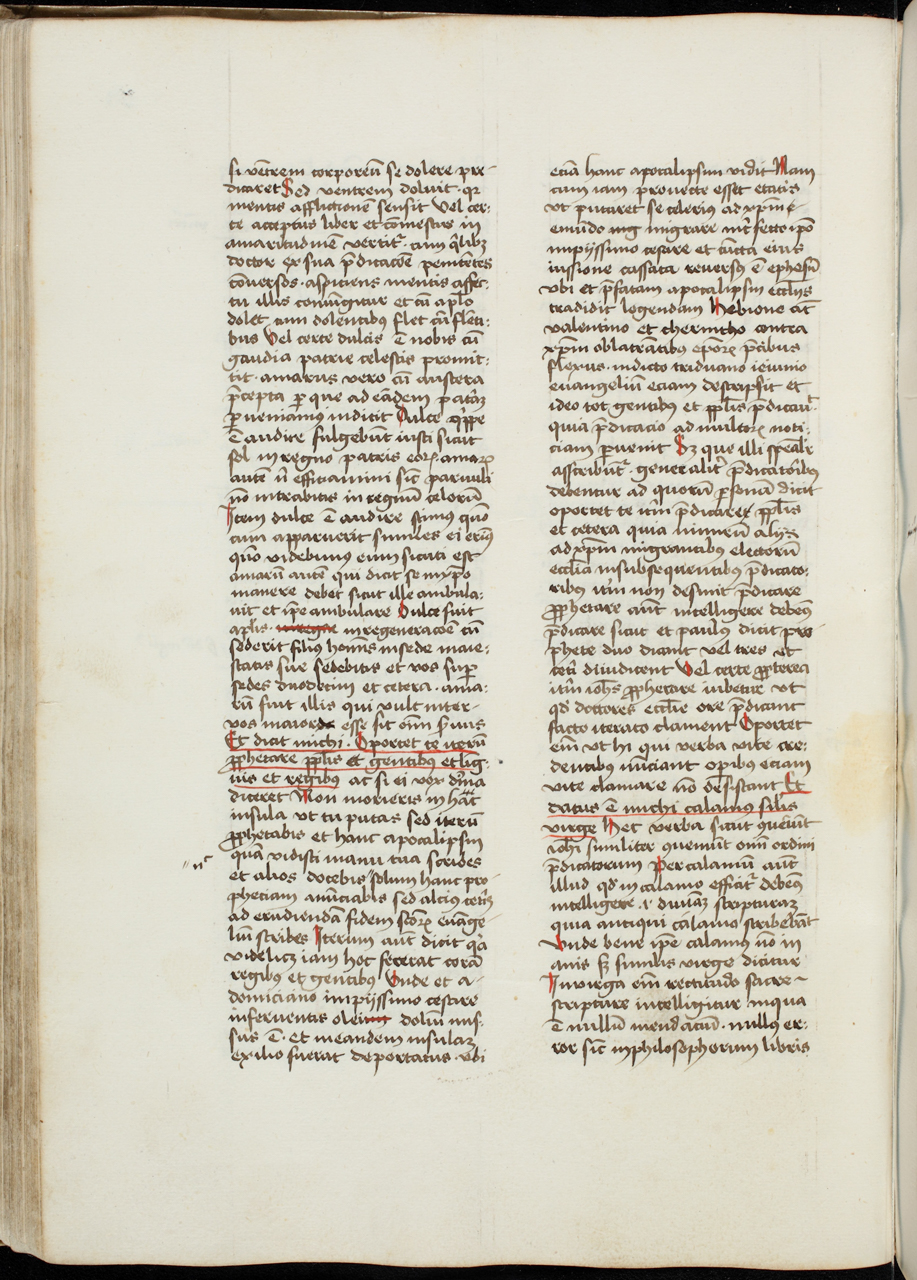 si ventrem corporeū se dolere pre-
dicaret Sed ventrem doluit · qr
mentis afflictionē sensit Vel cer:
te acceptus liber et comestus in
amaritudinē vertitr · cum qͥlibꝫ
doctor ex sua p̄dicacōe penitētes
cōuersos · aspiciens mentis affec-
tu illis coniūgitur et cū aplo
dolet cum dolentibus flet cū flenti-
bus Vel certe dulcis ē nobis cū
gaudia patrie celestis promit:
tit · amarus vero cū austera
p̄cepta per que ad eādem patriā
perueniamus indicit Dulce qͥppe
ē audire fulgebūt iusti sicut
sol in regno patris eorꝫ · amarū
autē nͥ efficiamini sic̄ paruuli
nō intrabitis in regnū celorū
Item dulce ē audire scimus quō
cum apparuerit similes ei erimꝰ
quō videbimus eum sicuti est
amarū autē qui dicit se in xp̄o
manere debet sicut ille ambula-
uit et ip̄e ambulare Dulce fuit
aplis · in regn̄e in regeneracōe cū
sederit filius homīs in sede maie-
statis sue sedebitis et vos super
sedes duodecim et cetera · ama:
rū fuit illis qui vult inter-
vos maior esse sit oīm s̄uus
Et dicit michi · Oportet te iterū
prophetare pplis et gentibus et lig-
uis et regibus ac si ei vox diuīa
diceret Non morieris in hac
insula vt tu putas sed iterū
prophetabis et hanc apocalipsim
quā vidisti manu tua scribes
nͨ
et alios docebis solum hanc pro-
pheciam anūciabis sed alcius ceteris
ad erudiendā fidem scōrꝫ euāge-
liū scribes Iterum aut̄ dicit qͥa
videlicꝫ iam hoc fecerat corā
regibus et gentibus Vnde et a-
domiciano impijssimo cesare
in feruentis olei doliū mis-
sus ē · et in eandem insulaꝫ
exilio fuerat deportatus · vbi
eciā hanc apocalipsim vidit Nam
cum iam prouecte esset etatis
vt putaret se celerius ad xp̄m e-
mūdo migrare int̄fecto ip̄o
impijssimo cesare et cūcta eius
iussione cassata reuersꝰ ē ephesū
vbi et p̄fatam apocalipsim eccl̄ijs
tradidit legendam Hebione at̄
valentino et cherintho contra
xp̄m oblatrātibus eporꝫ p̄cibus
flexus · indicto triduano ieiunio
euangeliū eciam descripsit et
ideo tot gentibus et pplis p̄dicauit
quia p̄dicacio ad multorꝫ noti-
ciam peruenit Sꝫ que illi spealr̄
asscribūtr · generalitr̄ p̄dicatoribus
debentur ad quorū personā dicit
oportet te itm̄ p̄dicare pplis
et cetera quia nimirū alijs
ad xp̄m migrantibus electorū
ecclīa in subsequentibus p̄dicato:
ribus itm̄ non desinit p̄dicare
prophetare aut̄ intelligere debemꝰ
p̄dicare sicut et paulus dicit pro-
phete duo dicant vel tres et
cetī diiudicent Vel certe propterea
itm̄ ioh̄s prophetare iubetur vt
qd̄ doctores ecclīe ore p̄dicant
facto iterato clament Oportet
eīm vt hi qui verba vite cre-
dentibus nūciant operibus eciam
vite clamare nō desistant Et
datus ē michi calamus silīs
virge Hec verba sicut queniūt
iohī similiter queniunt oīm ordini
p̄dicatorum Per calamū aut̄
illud qd̄ in calamo efficitr debemꝰ
intelligere · i · diuinaꝫ scripturaꝫ
quia antiqui calamo scribebāt
Vnde bene ip̄e calamus nō in
anis sꝫ similis virge dicitur
In virga eīm rectitudo sacre-
scripture intelligitur in qua
ē nullū mendaciū · nullus er-
ror sic̄ in philosophorum libris